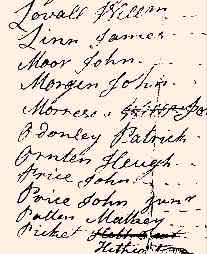 Lovall Willem
Linn James
Moor John
Morgen John
Morress
Odonley Patrick
Ornten Heugh
Price John
Price John Junr
Patten Mathey
Picket